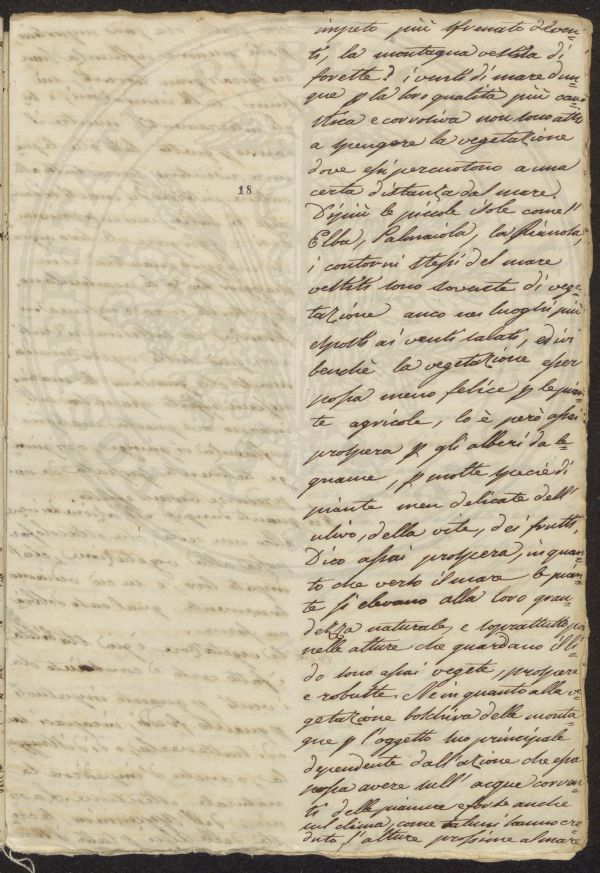 impeto più sfrenato di ven=
ti, la montagna vestita di
foreste? i venti di mare dun=
que p la loro qualità più cau=
stica e corrosiva non sono atti
a spengere la vegetazione
dove essi percuotono a una
certa distanza dal mare.
18
Di più le piccole isole come l'
Elba, Palmaiola, la Pianosa,
i contorni stessi del mare
vestiti sono sovente di vege=
tazione anco nei luoghi più
esposti ai venti salati, ed ivi
benchè la vegetazione esser
possa meno felice p le pian=
te agricole, lo è però assai
prospera p gli alberi da le=
gname, p molte specie di
piante men delicate dell'
ulivo, della vite, dei frutti,
Dico assai prospera, in quan=
to che verso il mare le pian=
te si elevano alla loro gran=
dezza naturale, e soprattutto
nelle alture che guardano il li=
do sono assai vegete, prospere
e robuste. Ne in quanto alla ve=
getazione boschiva delle monta=
gne p l'oggetto suo principale
dependente dall'azione che essa
possa avere sull'acque corren=
ti delle pianure e forse anche
sul clima, come taluni hanno cre=
duto, l'alture prossime al mare